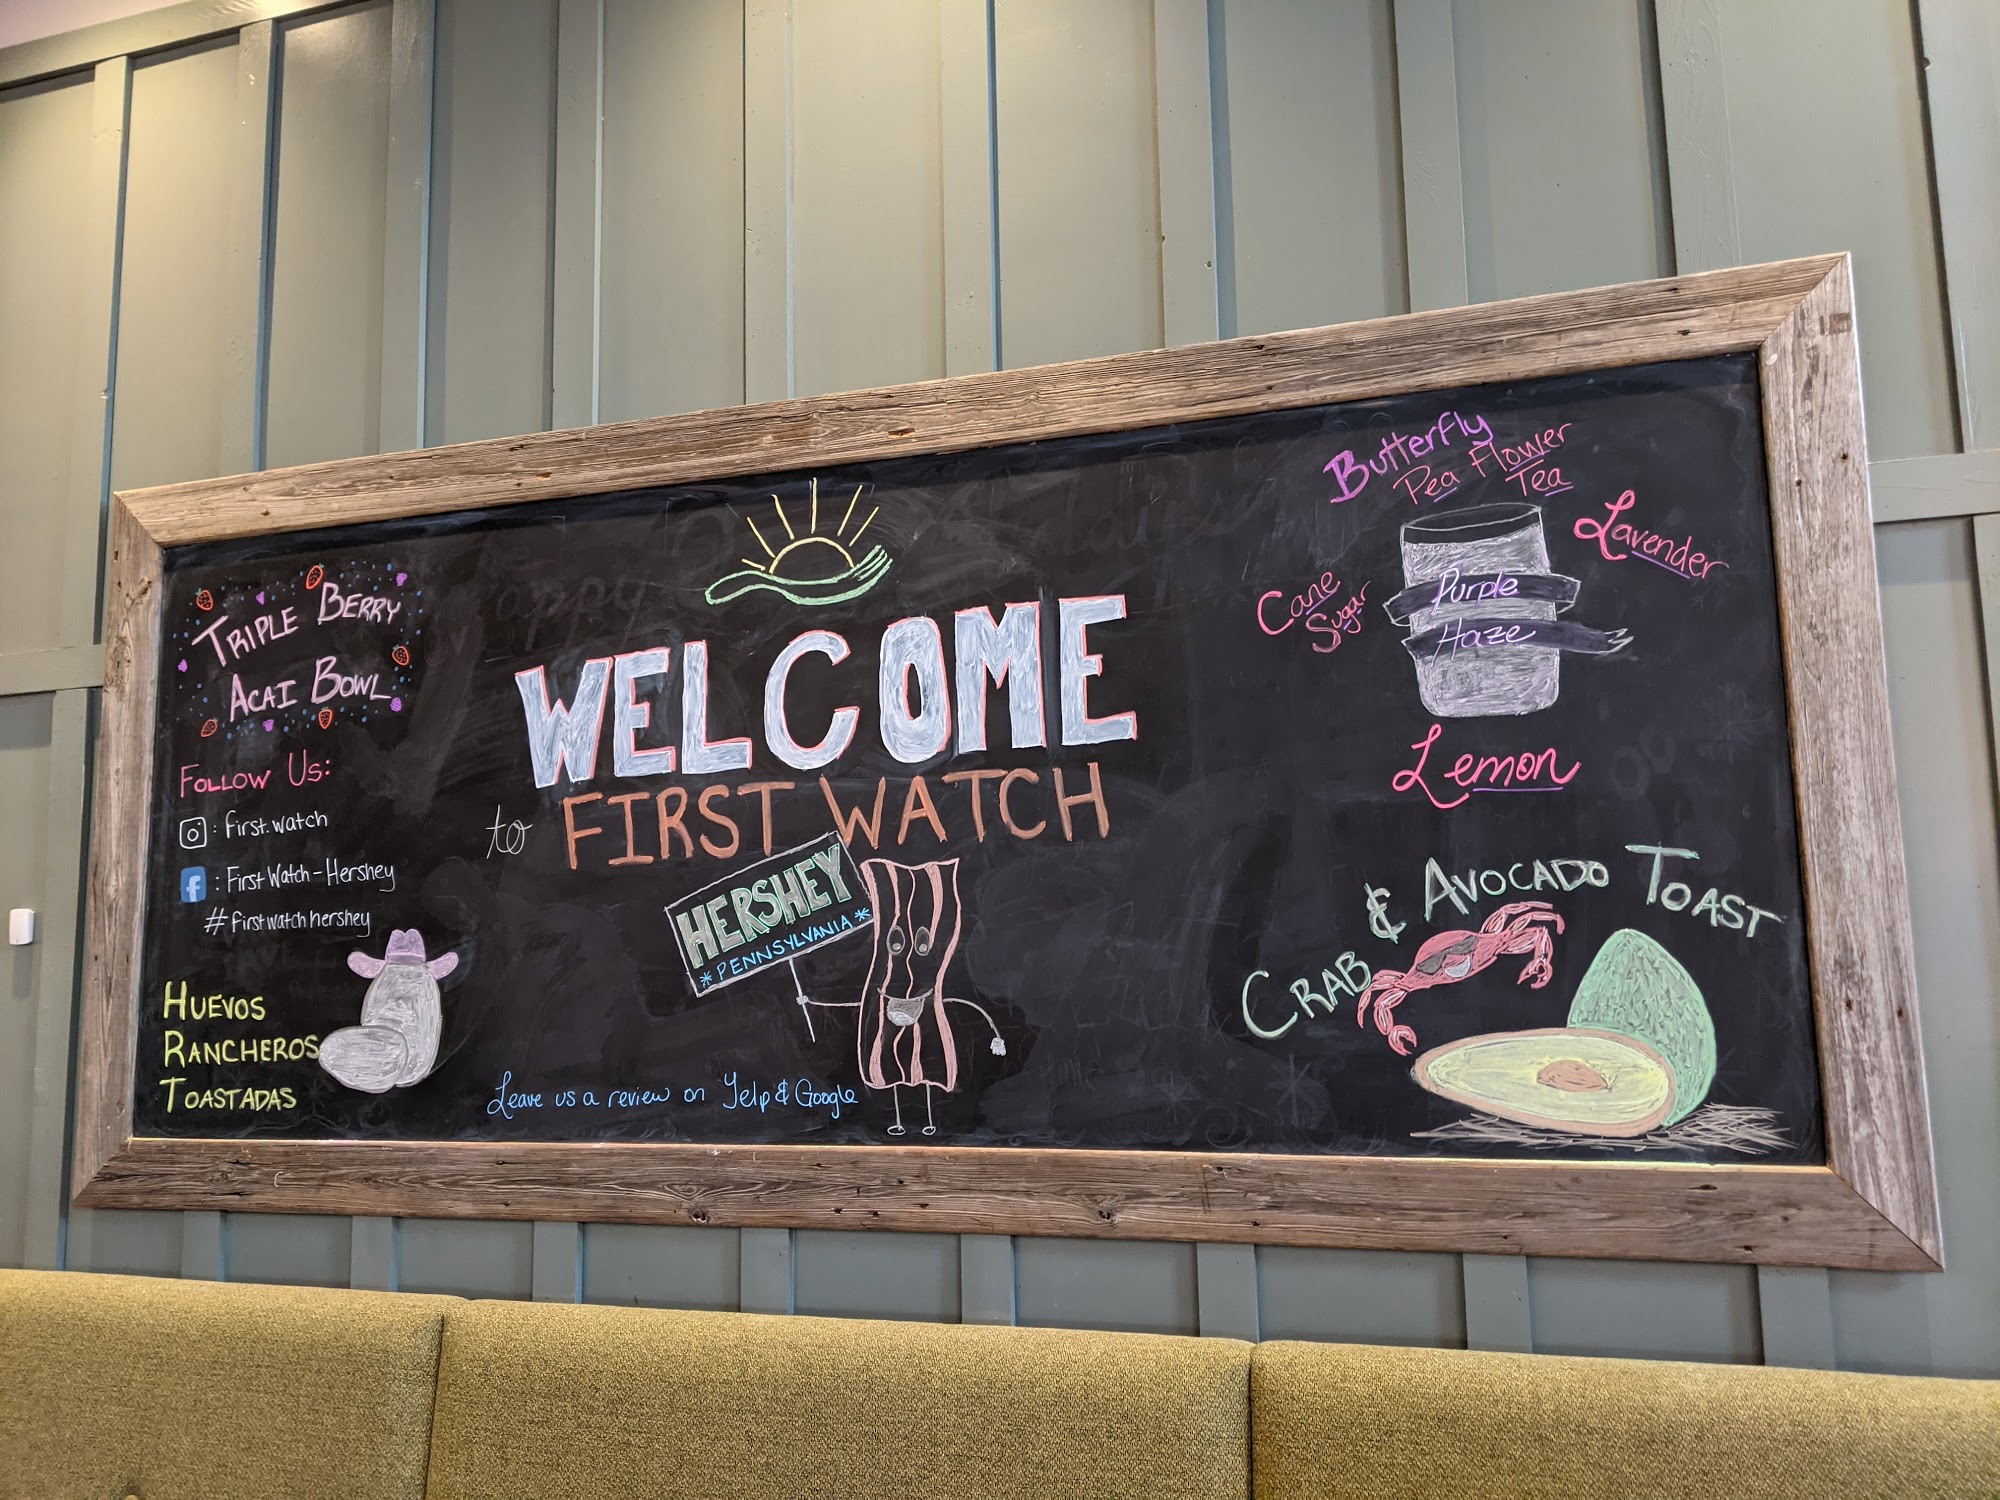 TRIPLE BERRY
ACAI BOWL
FOLLOW US:
: first.watch
f : First Watch - Hershey
#firstwatchhershey
HUEVOS
RANCHEROS
TOASTADAS
WELCOME
to FIRST WATCH
HERSHEY
*PENNSYLVANIA*
Leave us a review on Yelp & Google
Butterfly
Pea Flower
Tea
Lavender
Cane
Sugar
Purple
Haze
Lemon
CRAB & AVOCADO TOAST